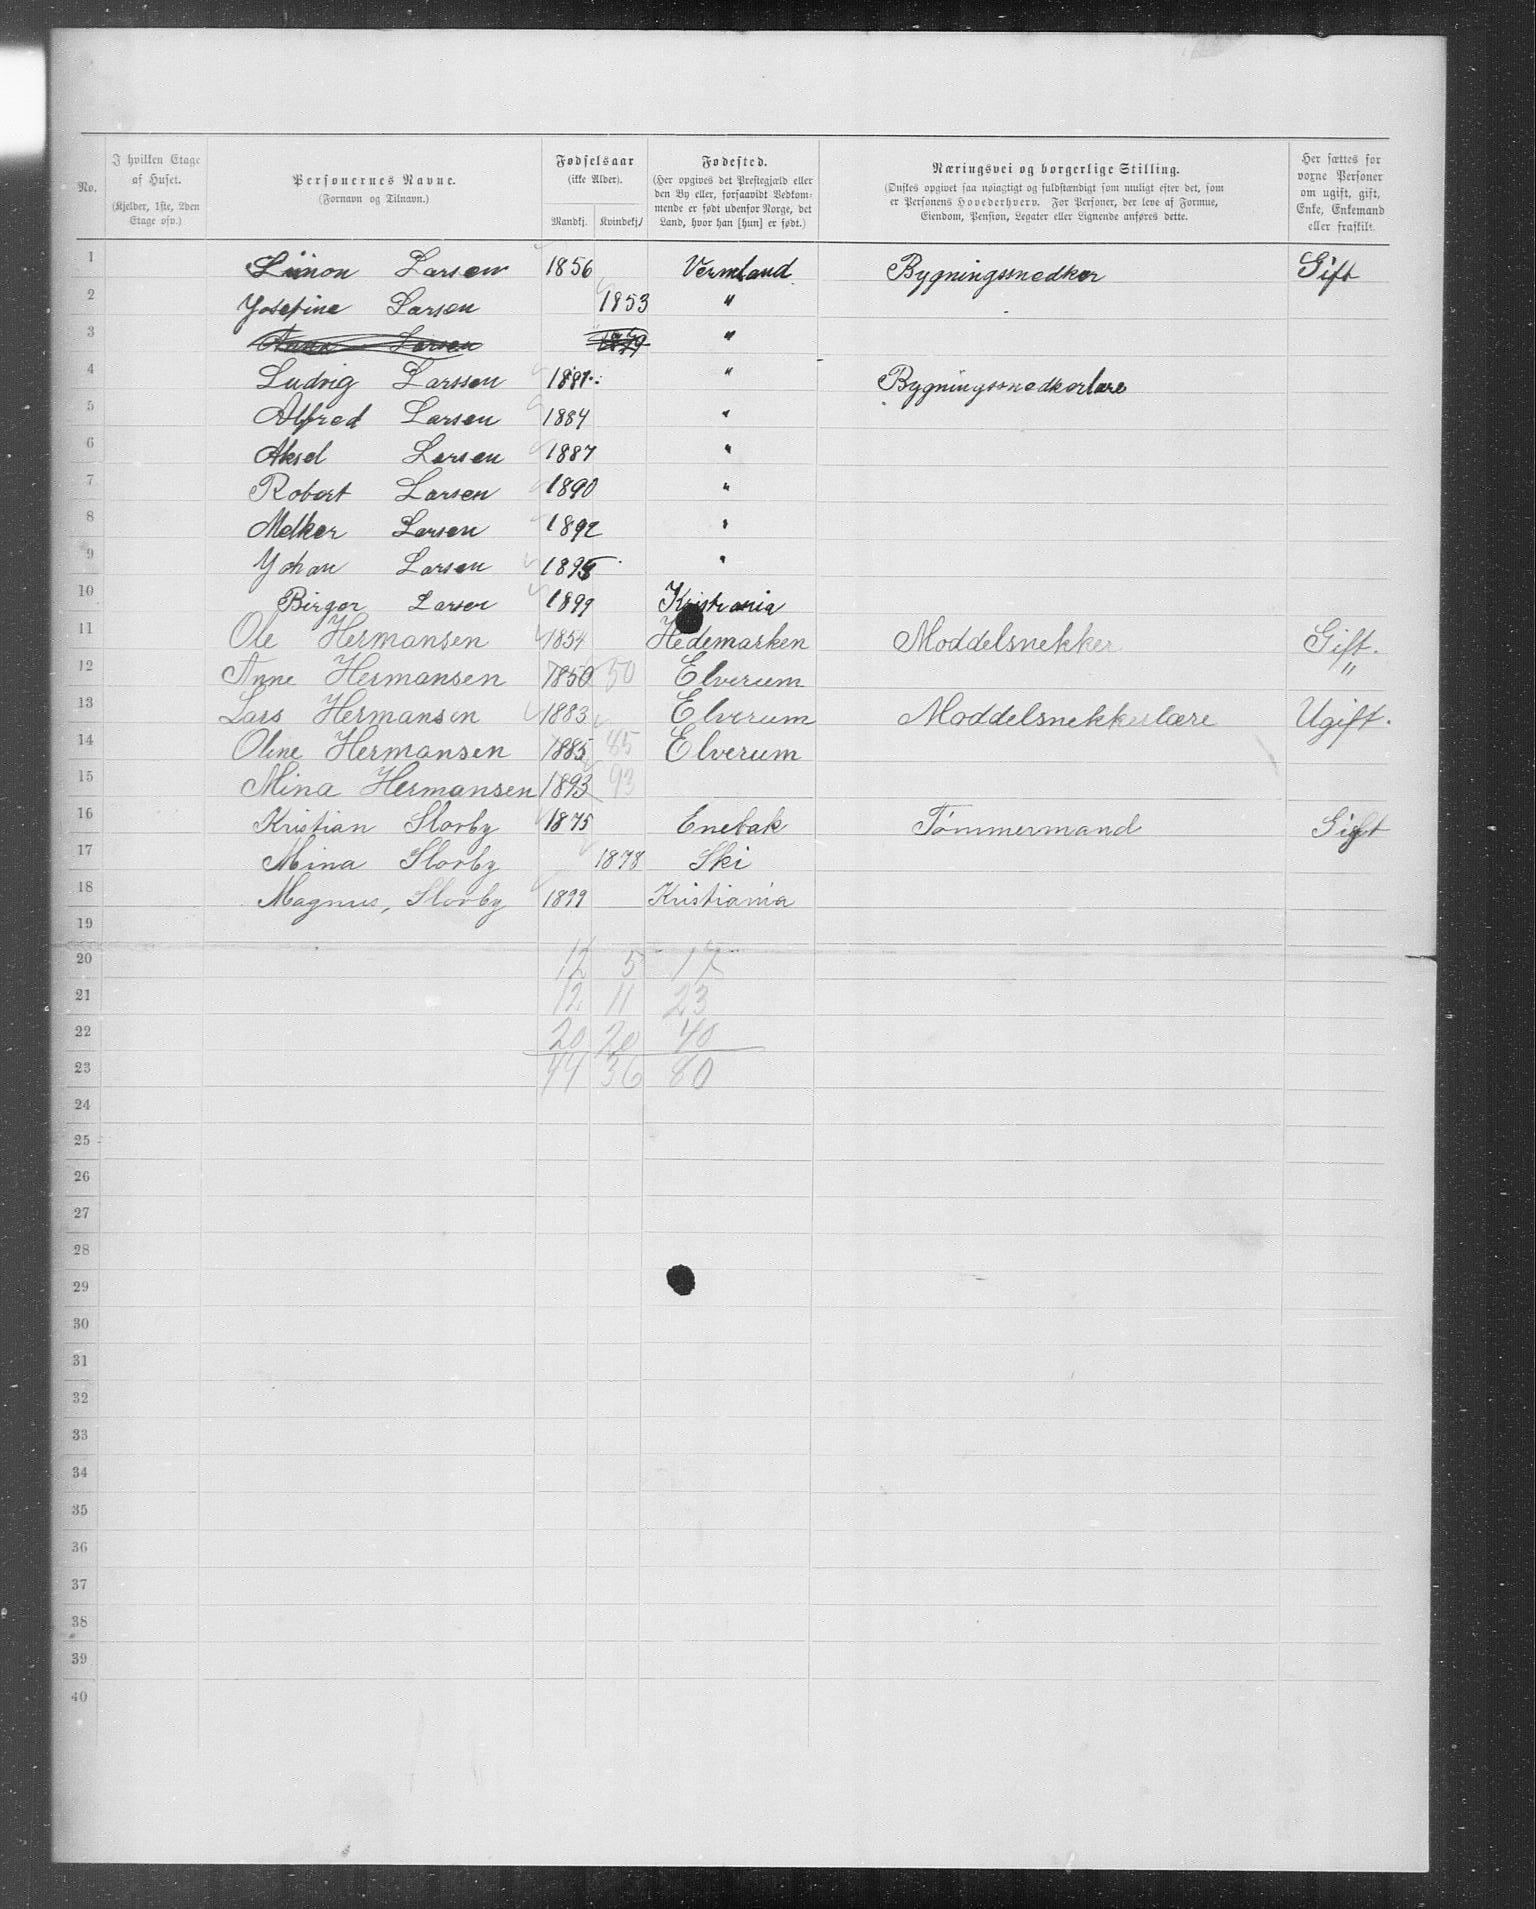 No. I hvilken Etage af Huset. (Kjelder, 1ste, 2den Etage osv.) Personernes Navne. (Fornavn og Tilnavn.) Fødselsaar (ikke Alder). Mandkj. Kvindekj. Fødested. (Her opgives det Prestegjæld eller den By eller, forsaavidt Vedkommende er født udenfor Norge, det Land, hvor han [hun] er født.) Næringsvei og borgerlige Stilling. (Ønskes opgivet saa nøiagtigt og fuldstændigt som muligt efter det, som er Personens Hovederhverv. For Personer, der leve af Formue, Eiendom, Pension, Legater eller Lignende anføres dette. Her sættes for voxne Personer om ugift, gift, Enke, Enkemand eller fraskilt.
1 Simon Larsen 1856 Vermland Bygningssnedker Gift
2 Josefine Larsen 1853 "
3 Anna Larsen 1879 "
4 Ludvig Larssen 1881 " Bygningssnedkerlære
5 Alfred Larsen 1884 "
6 Aksel Larsen 1887 "
7 Robert Larsen 1890 "
8 Melker Larsen 1892 "
9 Johan Larsen 1895 "
10 Birger Larsen 1899 Kristiania
11 Ole Hermansen 1854 Hedemarken Moddelsnekker Gift.
12 Anne Hermansen 1850 50 Elverum "
13 Lars Hermansen 1883 Elverum Moddelsnekkerlære Ugift.
14 Oline Hermansen 1885 85 Elverum
15 Mina Hermansen 1893 93
16 Kristian Slorby 1875 Enebak Tømmermand Gift
17 Mina Slorby 1878 Ski
18 Magnus, Slorby 1899 Kristiania
19
20 12 5 17
21 12 11 23
22 20 20 40
23 44 36 80
24
25
26
27
28
29
30
31
32
33
34
35
36
37
38
39
40